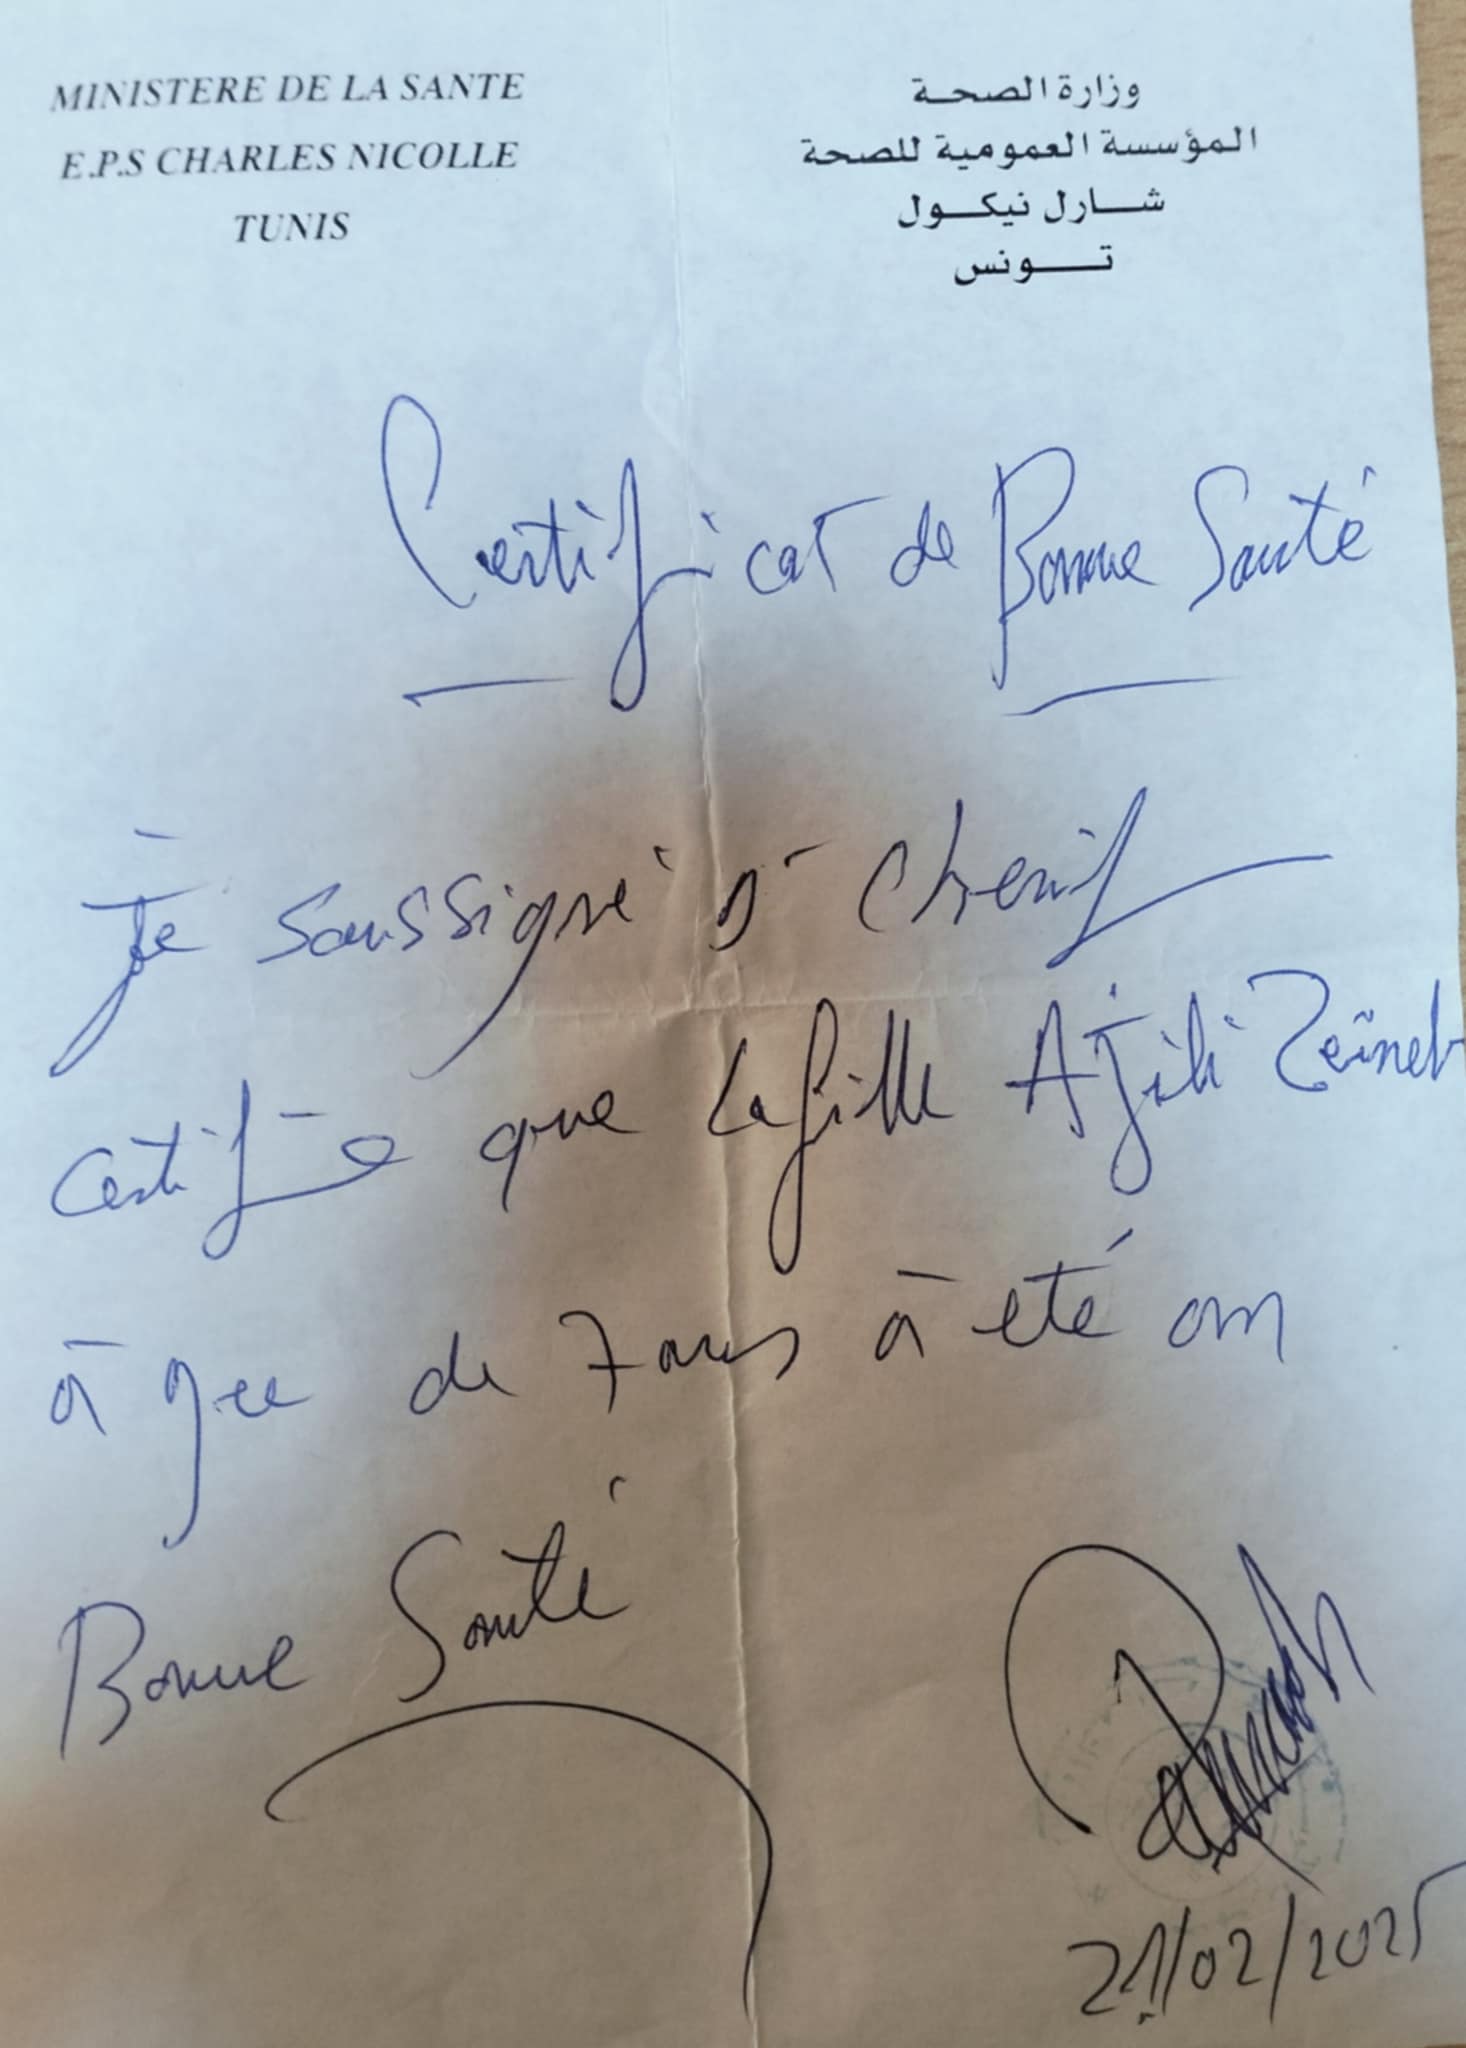 MINISTERE DE LA SANTE
E.P.S CHARLES NICOLLE
TUNIS
وزارة الصحة
المؤسسة العمومية للصحة
شارل نيكول
تونس
Certificat de Bonne Santé
Je soussigné Dr Cherif
certifie que la fille Ajili Zeineb
âgée de 7 ans à été en
Bonne Santé
21/02/2025